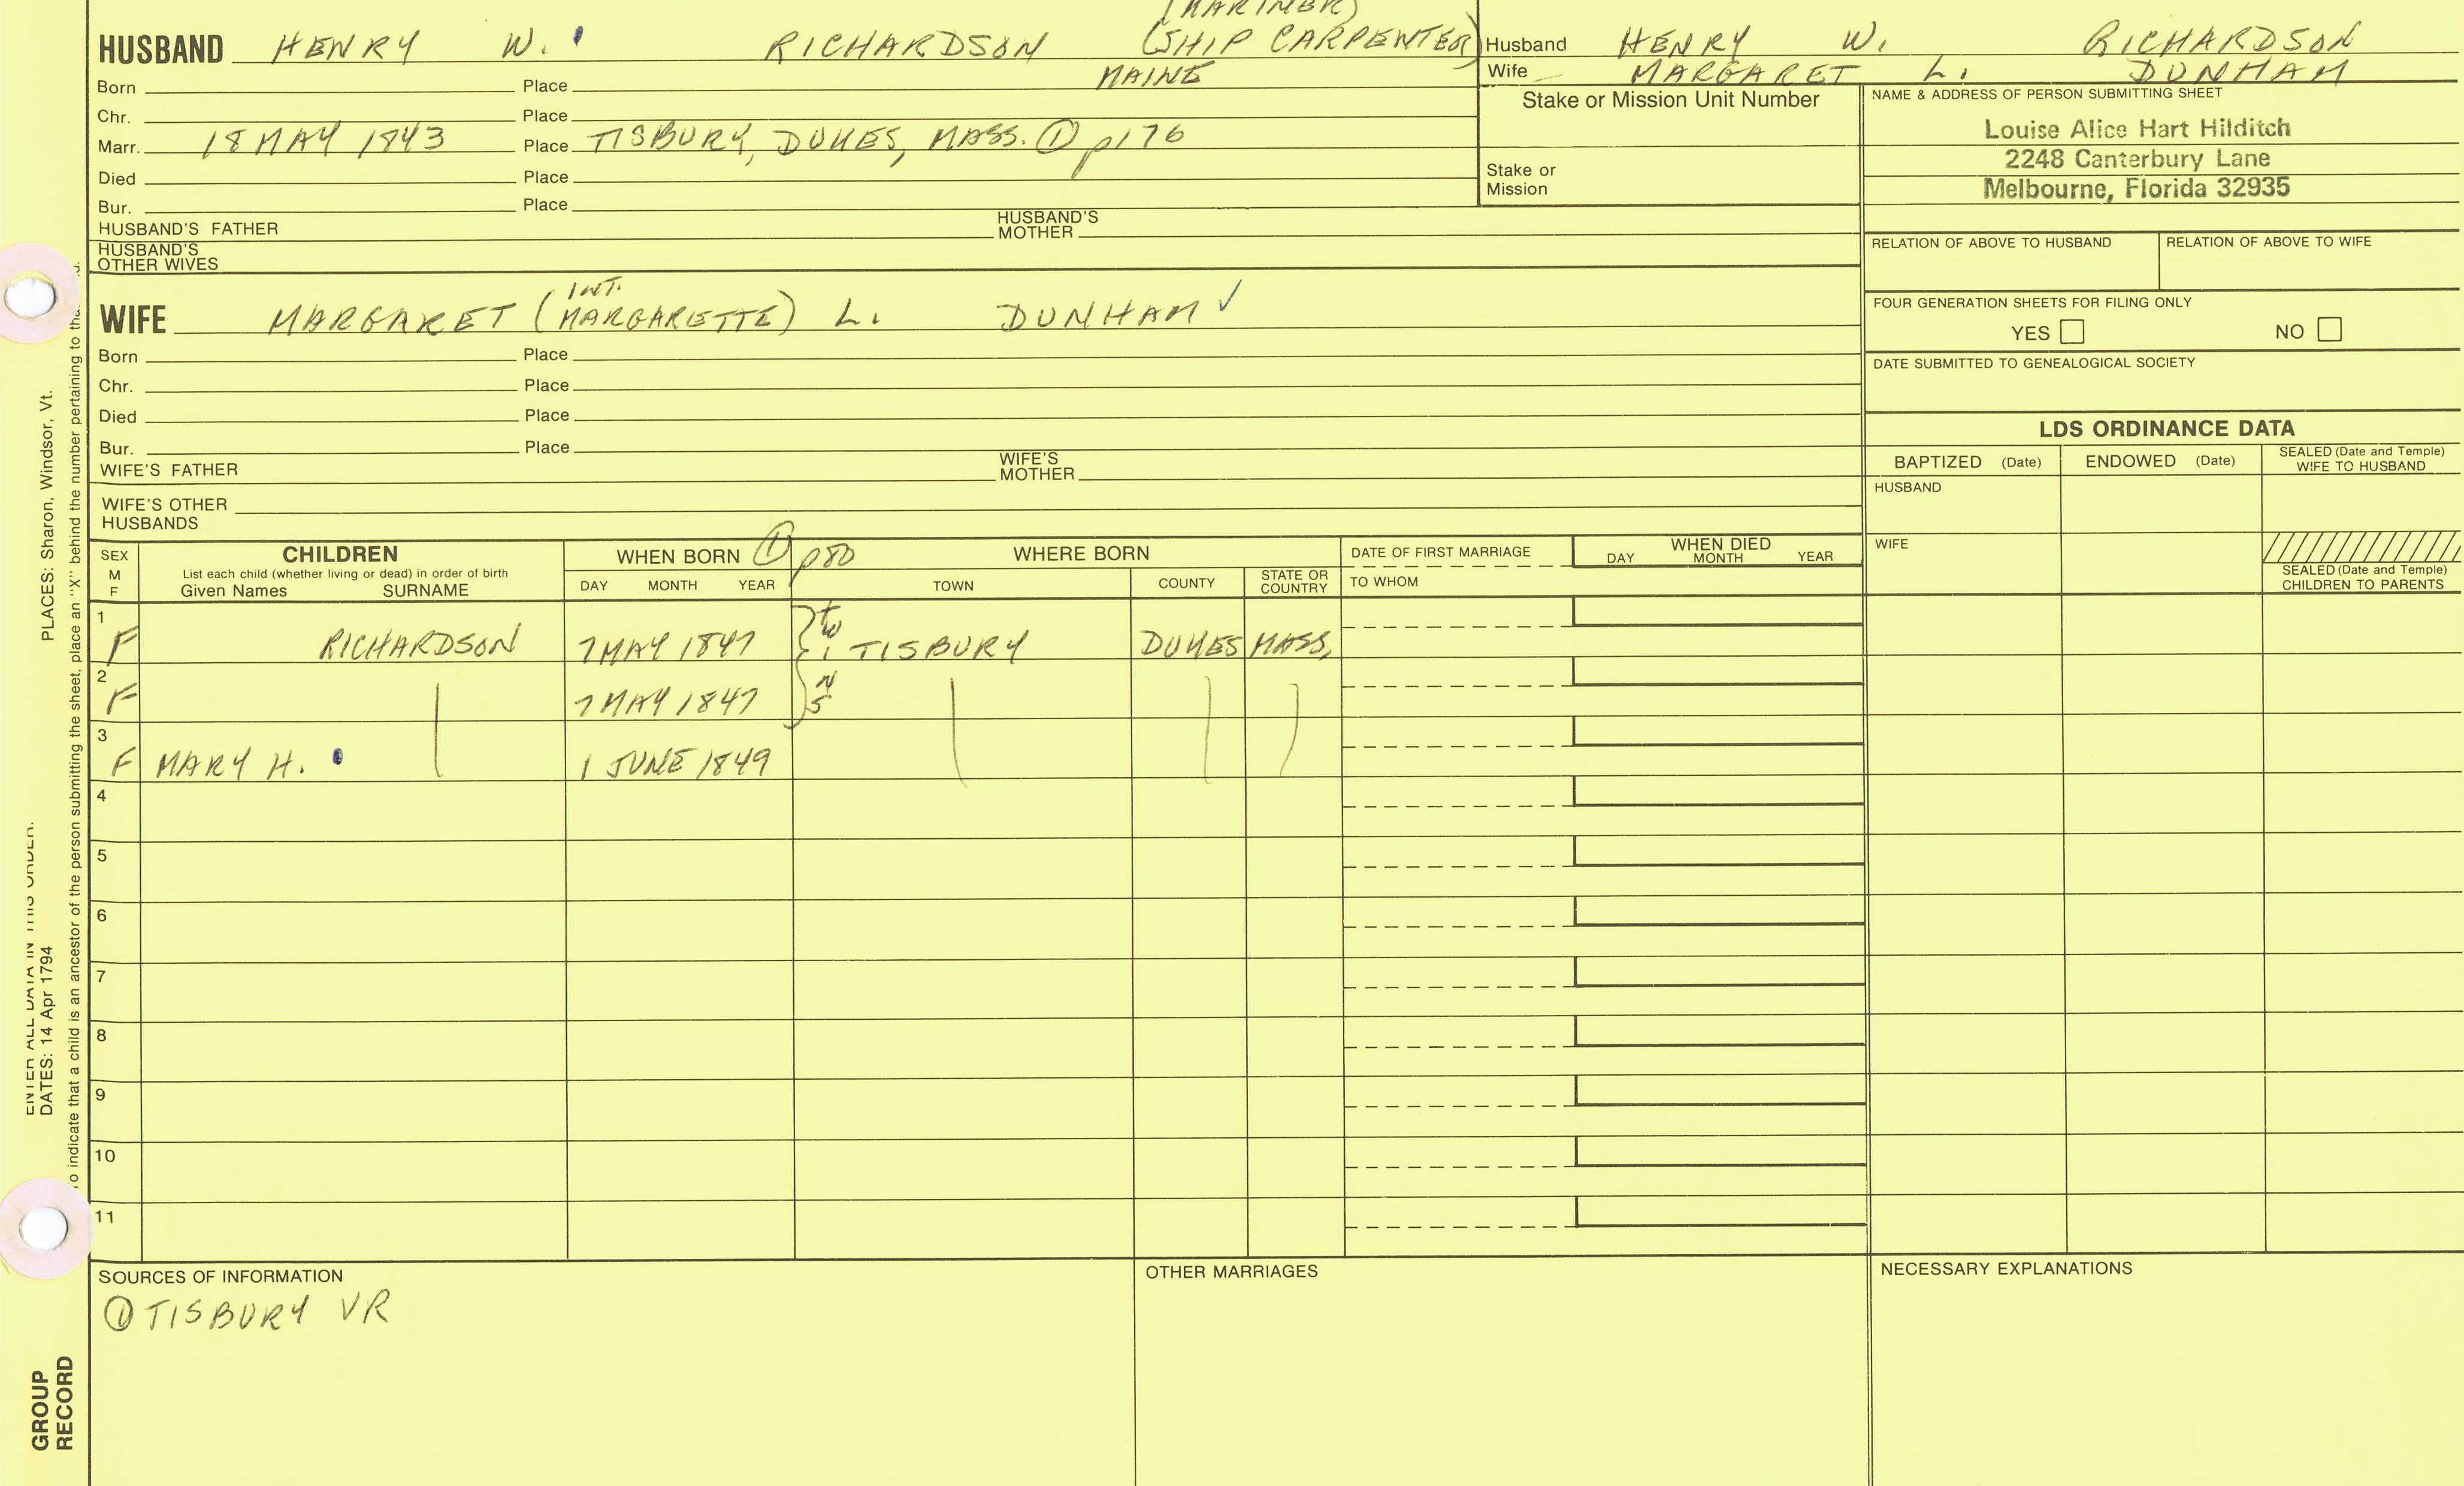 (MARINER)
HUSBAND HENRY W. RICHARDSON (SHIP CARPENTER)
Born Place MAINE
Chr. Place
Marr. 18 MAY 1843 Place TISBURY, DUKES, MASS. ① p176
Died Place
Bur. Place
HUSBAND'S FATHER HUSBAND'S MOTHER
HUSBAND'S OTHER WIVES
Husband HENRY W. RICHARDSON
Wife MARGARET L. DUNHAM
Stake or Mission Unit Number
Stake or Mission
NAME & ADDRESS OF PERSON SUBMITTING SHEET
Louise Alice Hart Hilditch
2248 Canterbury Lane
Melbourne, Florida 32935
RELATION OF ABOVE TO HUSBAND RELATION OF ABOVE TO WIFE
FOUR GENERATION SHEETS FOR FILING ONLY
YES NO
DATE SUBMITTED TO GENEALOGICAL SOCIETY
INT.
WIFE MARGARET (MARGARETTE) L. DUNHAM ✓
Born Place
Chr. Place
Died Place
Bur. Place
WIFE'S FATHER WIFE'S MOTHER
WIFE'S OTHER HUSBANDS
LDS ORDINANCE DATA
BAPTIZED (Date) ENDOWED (Date) SEALED (Date and Temple) WIFE TO HUSBAND
HUSBAND
WIFE
SEALED (Date and Temple) CHILDREN TO PARENTS
SEX M F
CHILDREN
List each child (whether living or dead) in order of birth
Given Names SURNAME
WHEN BORN ① p80
DAY MONTH YEAR
WHERE BORN
TOWN COUNTY STATE OR COUNTRY
DATE OF FIRST MARRIAGE
TO WHOM
WHEN DIED
DAY MONTH YEAR
1 F RICHARDSON 7 MAY 1847 TWINS TISBURY DUKES MASS.
2 F 7 MAY 1847
3 F MARY H. 1 JUNE 1849
4
5
6
7
8
9
10
11
SOURCES OF INFORMATION
① TISBURY VR
OTHER MARRIAGES
NECESSARY EXPLANATIONS
ENTER ALL DATA IN THIS ORDER:
DATES: 14 Apr 1794
PLACES: Sharon, Windsor, Vt.
To indicate that a child is an ancestor of the person submitting the sheet, place an "X" behind the number pertaining to
GROUP
RECORD